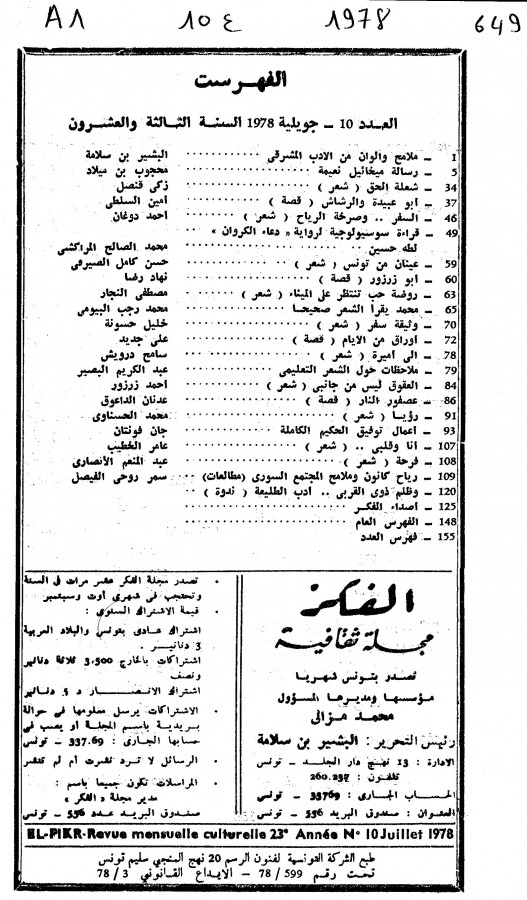 A1 10 ع 1978 649
الفهرست
العدد 10 – جويلية 1978 السنة الثالثة والعشرون
1 – ملامح والوان من الادب المشرقى البشير بن سلامة
5 – رسالة ميخائيل نعيمة محجوب بن ميلاد
34 – شعلة الحق ( شعر ) زكى قنصل
37 – أبو عبيدة والرشاش ( قصة ) أمين السلطى
46 – السفر .. وصرخة الرياح ( شعر ) احمد دوغان
49 – قراءة سوسيولوجية لرواية « دعاء الكروان »
لطه حسين محمد الصالح المراكشى
59 – عينان من تونس ( شعر ) حسن كامل الصيرفى
60 – ابو زرزور ( قصة ) نهاد رضا
63 – روضة حب تنتظر على الميناء ( شعر ) مصطفى النجار
65 – محمد يقرأ الشعر صحيحا محمد رجب البيومى
70 – وثيقة سفر ( شعر ) خليل حسونة
72 – اوراق من الايام ( قصة ) على جديد
78 – الى أميرة ( شعر ) سامح درويش
79 – ملاحظات حول الشعر التعليمى عبد الكريم البصير
84 – العقوق ليس من جانبى ( شعر ) احمد زرزور
86 – عصفور النار ( قصة ) عدنان الداعوق
91 – رؤيا ( شعر ) محمد الحسناوى
93 – أعمال توفيق الحكيم الكاملة جان فونتان
107 – أنا وقلبى .. ( شعر ) عامر الخطيب
108 – فرحة ( شعر ) عبد المنعم الأنصارى
109 – رياح كانون وملامح المجتمع السورى (مطالعات) سمر روحى الفيصل
120 – وظلم ذوى القربى .. أدب الطليعة ( ندوة )
125 – أصداء الفكر
148 – الفهرس العام
155 – فهرس العدد
الفكر
مجلة ثقافية
تصدر بتونس شهريا
مؤسسها ومديرها المسؤول
محمد مزالى
رئيس التحرير : البشير بن سلامة
الادارة : 13 نهج دار الجلد – تونس
تلفون : 260.237
الحساب الجارى : 33769 – تونس
العنوان : صندوق البريد 556 – تونس
• تصدر مجلة الفكر عشر مرات فى السنة
وتحتجب فى شهرى أوت وسبتمبر
• قيمة الاشتراك السنوى :
اشتراك عادى بتونس والبلاد العربية
3 دنانير .
اشتراكات بالخارج 3,500 ثلاثة دنانير
ونصف
اشتراك الانصار 5 دنانير
• الاشتراكات يرسل معلومها فى حوالة
بريدية باسم المجلة أو يصب فى
حسابها الجارى : 337.69 – تونس
• الرسائل لا ترد نشرت أم لم تنشر
• المراسلات تكون جميعا باسم :
مدير مجلة « الفكر »
صندوق البريد عدد 556 – تونس
EL-FIKR-Revue mensuelle culturelle 23e Année N° 10 Juillet 1978
طبع الشركة التونسية لفنون الرسم 20 نهج المنجي سليم تونس
تحت رقم 599 / 78 – الايداع القانوني 3 / 78